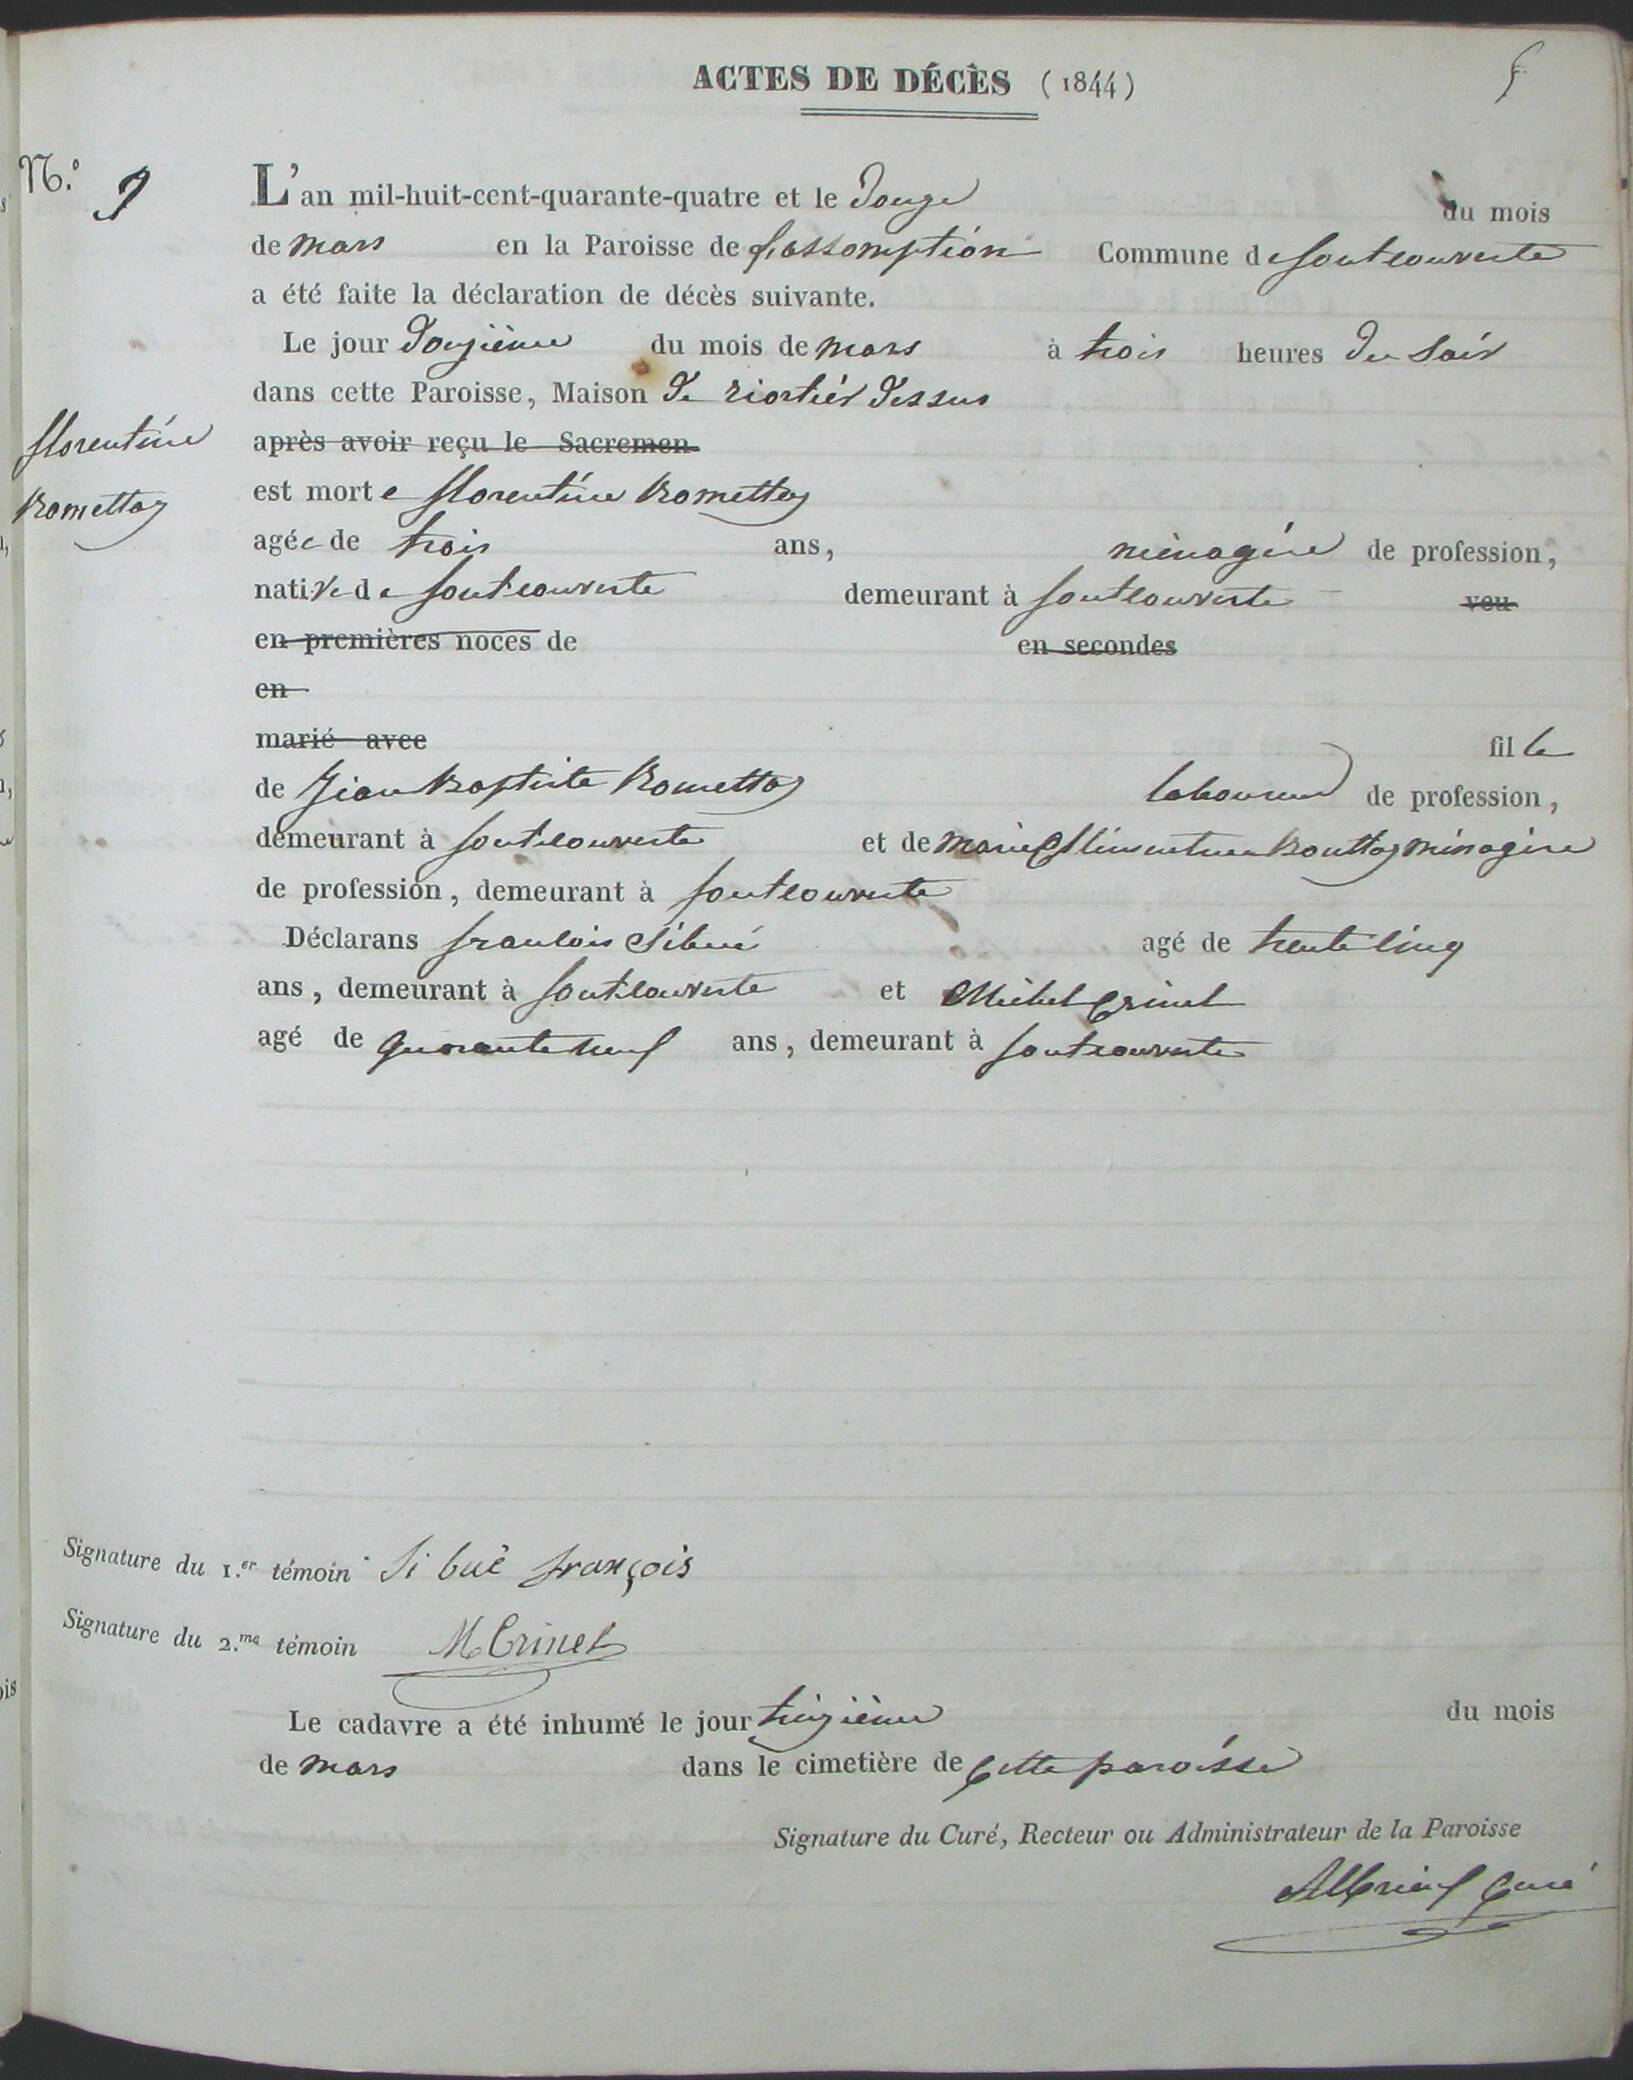 ACTES DE DÉCÈS (1844)
5
N.º 9
L'an mil-huit-cent-quarante-quatre et le Douze du mois
de mars en la Paroisse de L'assomption Commune de fontcouverte
a été faite la déclaration de décès suivante.
Le jour Douzième du mois de mars à trois heures du Soir
dans cette Paroisse, Maison de riortier Dessus
après avoir reçu le Sacremen
florentine
Romettaz
est morte florentine Romettaz
agée de trois ans, ménagère de profession,
native de fontcouverte demeurant à fontcouverte veu
en premières noces de en secondes
en
marié avec fille
de Jean Baptiste Romettaz laboureur de profession,
demeurant à fontcouverte et de marie ménagère
de profession, demeurant à fontcouverte
Déclarans francois Sibué agé de trente cinq
ans, demeurant à fontcouverte et Michel Crinel
agé de quarante neuf ans, demeurant à fontcouverte
Signature du 1.er témoin Si bué françois
Signature du 2.me témoin M Crinel
Le cadavre a été inhumé le jour treizième du mois
de mars dans le cimetière de Cette paroisse
Signature du Curé, Recteur ou Administrateur de la Paroisse
Curé